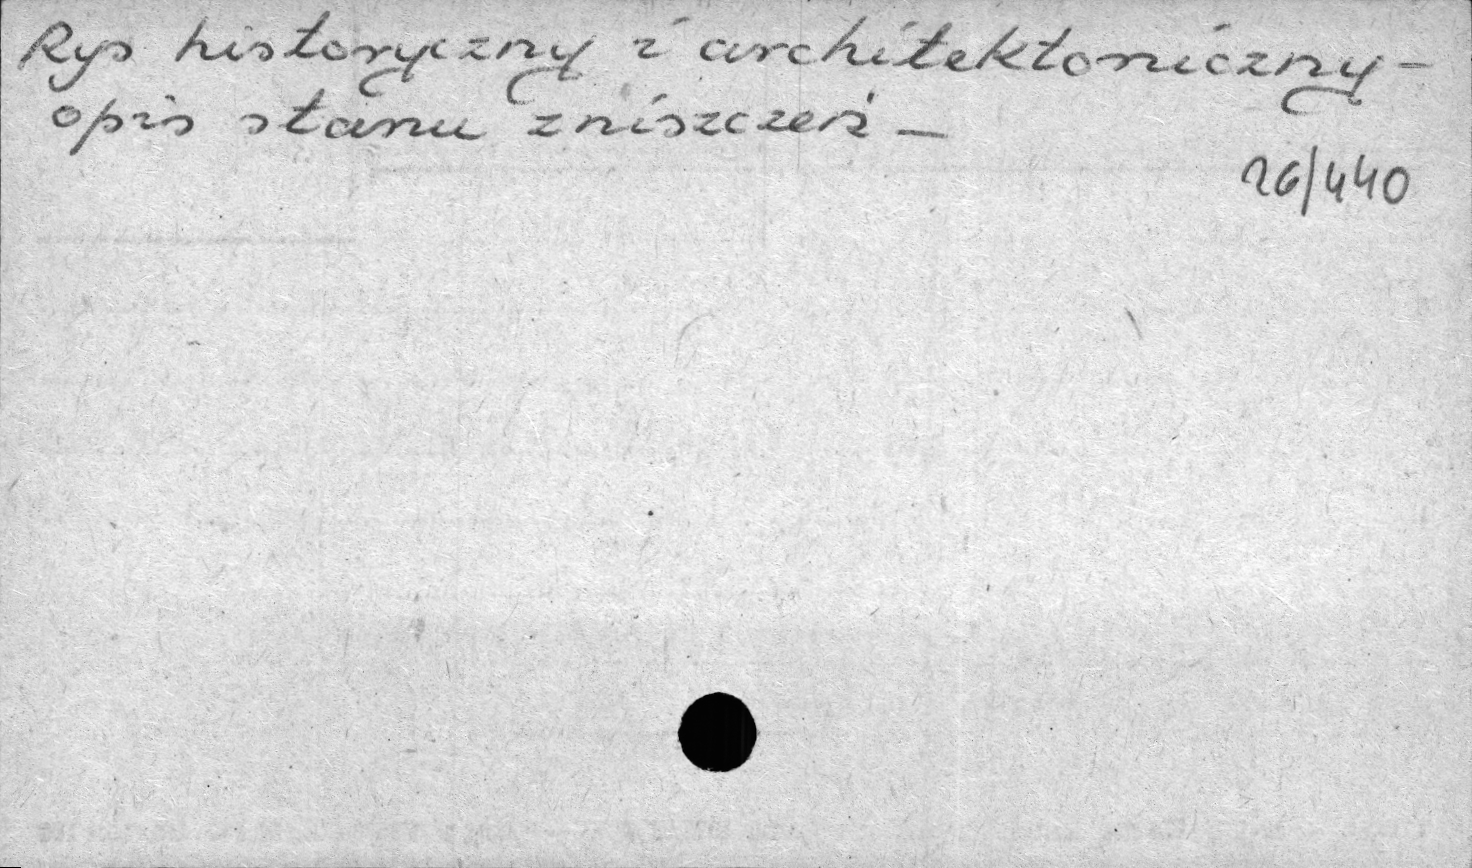 Rys historyczny i architektoniczny –
opis stanu zniszczeń –
26/440